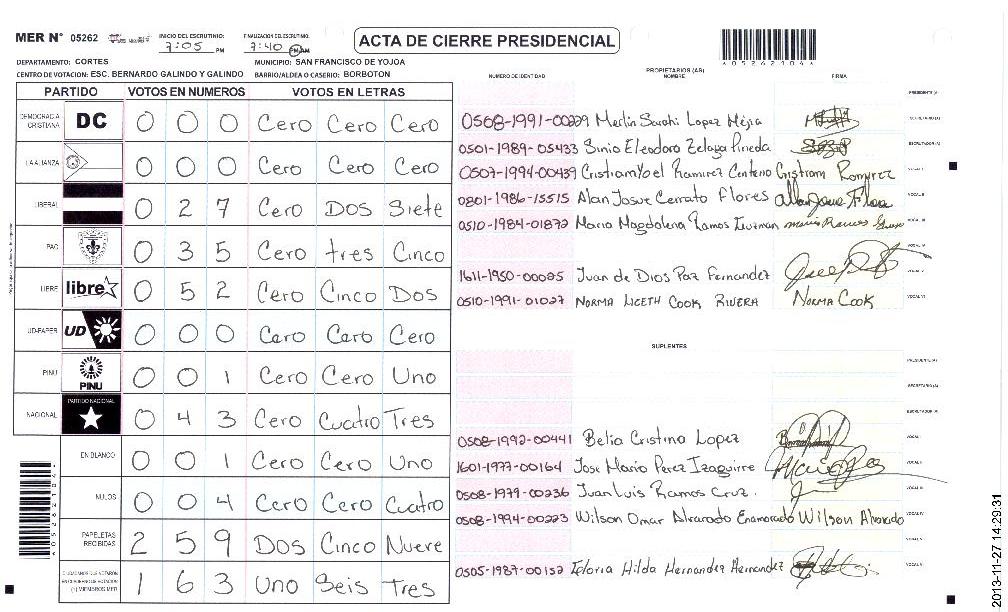 MER N° 05262
INICIO DEL ESCRUTINIO: 7:05 PM
FINALIZACION DEL ESCRUTINIO: 7:40 PM AM
ACTA DE CIERRE PRESIDENCIAL
DEPARTAMENTO: CORTES
MUNICIPIO: SAN FRANCISCO DE YOJOA
CENTRO DE VOTACION: ESC. BERNARDO GALINDO Y GALINDO
BARRIO/ALDEA O CASERIO: BORBOTON
PARTIDO VOTOS EN NUMEROS VOTOS EN LETRAS
DEMOCRACIA CRISTIANA DC 0 0 0 Cero Cero Cero
LA ALIANZA 0 0 0 Cero Cero Cero
LIBERAL 0 2 7 Cero Dos Siete
PAC 0 3 5 Cero tres Cinco
LIBRE libre 0 5 2 Cero Cinco Dos
UD-FAPER UD 0 0 0 Cero Cero Cero
PINU PINU 0 0 1 Cero Cero Uno
NACIONAL PARTIDO NACIONAL 0 4 3 Cero Cuatro Tres
EN BLANCO 0 0 1 Cero Cero Uno
NULOS 0 0 4 Cero Cero Cuatro
PAPELETAS RECIBIDAS 2 5 9 Dos Cinco Nueve
CIUDADANOS QUE VOTARON EN CUADERNO DE VOTACION (*) MIEMBROS MER 1 6 3 Uno Seis Tres
NUMERO DE IDENTIDAD PROPIETARIOS (AS) NOMBRE FIRMA
PRESIDENTE (A)
0508-1991-00229 Merlin Sarahi Lopez Mejia SECRETARIO (A)
0501-1989-05433 Sinio Eleodoro Zelaya Pineda ESCRUTADOR (A)
0507-1994-00439 Cristiam Yoel Ramirez Centeno Cristiam Ramirez VOCAL I
0801-1986-15515 Alan Josue Cerrato Flores VOCAL II
0510-1984-01872 Maria Magdalena Ramos Guzman Maria Ramos VOCAL III
VOCAL IV
1611-1950-00025 Juan de Dios Paz Fernandez VOCAL V
0510-1991-01027 NORMA LICETH COOK RIVERA NORMA COOK VOCAL VI
SUPLENTES
PRESIDENTE (A)
SECRETARIO (A)
ESCRUTADOR (A)
0508-1992-00441 Belia Cristina Lopez VOCAL I
1601-1977-00164 Jose Mario Perez Izaguirre VOCAL II
0508-1979-00236 Juan Luis Ramos Cruz. VOCAL III
0508-1994-00223 Wilson Omar Alvarado Enamorado Wilson Alvarado VOCAL IV
VOCAL V
0505-1987-00152 Hilda Hernandez Hernandez VOCAL VI
2013-11-27 14:29:31